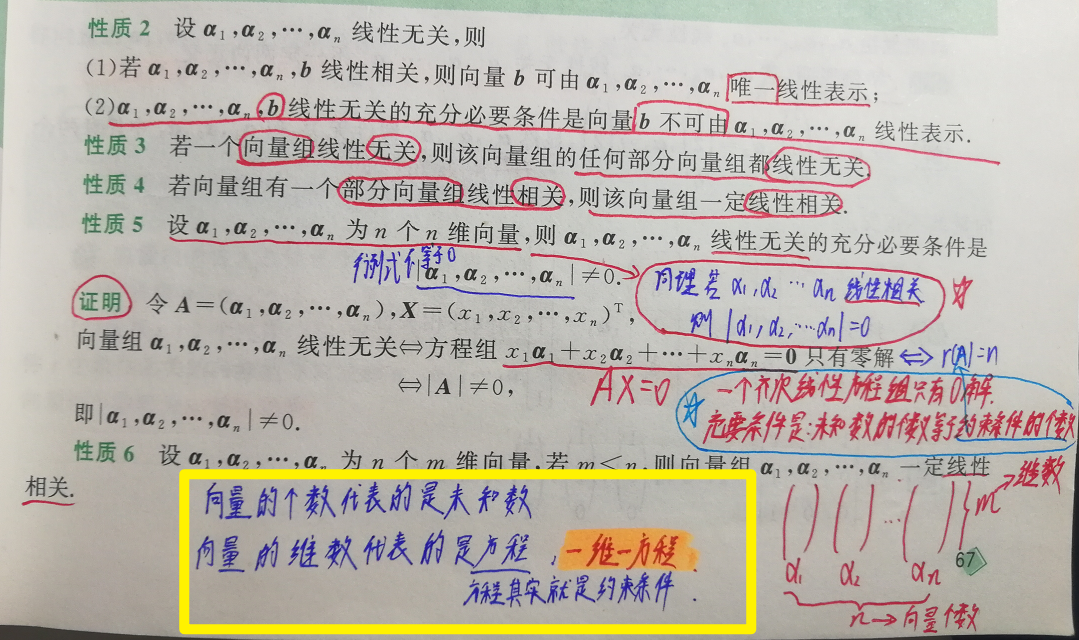 性质 2 设 α₁,α₂,⋯,αₙ 线性无关,则
(1)若 α₁,α₂,⋯,αₙ,b 线性相关,则向量 b 可由 α₁,α₂,⋯,αₙ 唯一线性表示;
(2)α₁,α₂,⋯,αₙ,b 线性无关的充分必要条件是向量 b 不可由 α₁,α₂,⋯,αₙ 线性表示.
性质 3 若一个向量组线性无关,则该向量组的任何部分向量组都线性无关.
性质 4 若向量组有一个部分向量组线性相关,则该向量组一定线性相关.
性质 5 设 α₁,α₂,⋯,αₙ 为 n 个 n 维向量,则 α₁,α₂,⋯,αₙ 线性无关的充分必要条件是
行列式不等于0
|α₁,α₂,⋯,αₙ|≠0.
同理若 α₁,α₂ ⋯ αₙ 线性相关
则 |α₁,α₂,⋯αₙ|=0
证明 令 A=(α₁,α₂,⋯,αₙ),X=(x₁,x₂,⋯,xₙ)ᵀ,
向量组 α₁,α₂,⋯,αₙ 线性无关⇔方程组 x₁α₁+x₂α₂+⋯+xₙαₙ=0 只有零解 ⇔ r(A)=n
⇔|A|≠0,
AX=0
一个齐次线性方程组只有0解.
充要条件是:未知数的个数等于约束条件的个数
即|α₁,α₂,⋯,αₙ|≠0.
性质 6 设 α₁,α₂,⋯,αₙ 为 n 个 m 维向量,若 m<n,则向量组 α₁,α₂,⋯,αₙ 一定线性
相关.
向量的个数代表的是未知数
向量的维数代表的是方程,一维一方程.
方程其实就是约束条件.
( ) ( ) ⋯ ( ) } m→维数
α₁ α₂ αₙ
n→向量个数
67